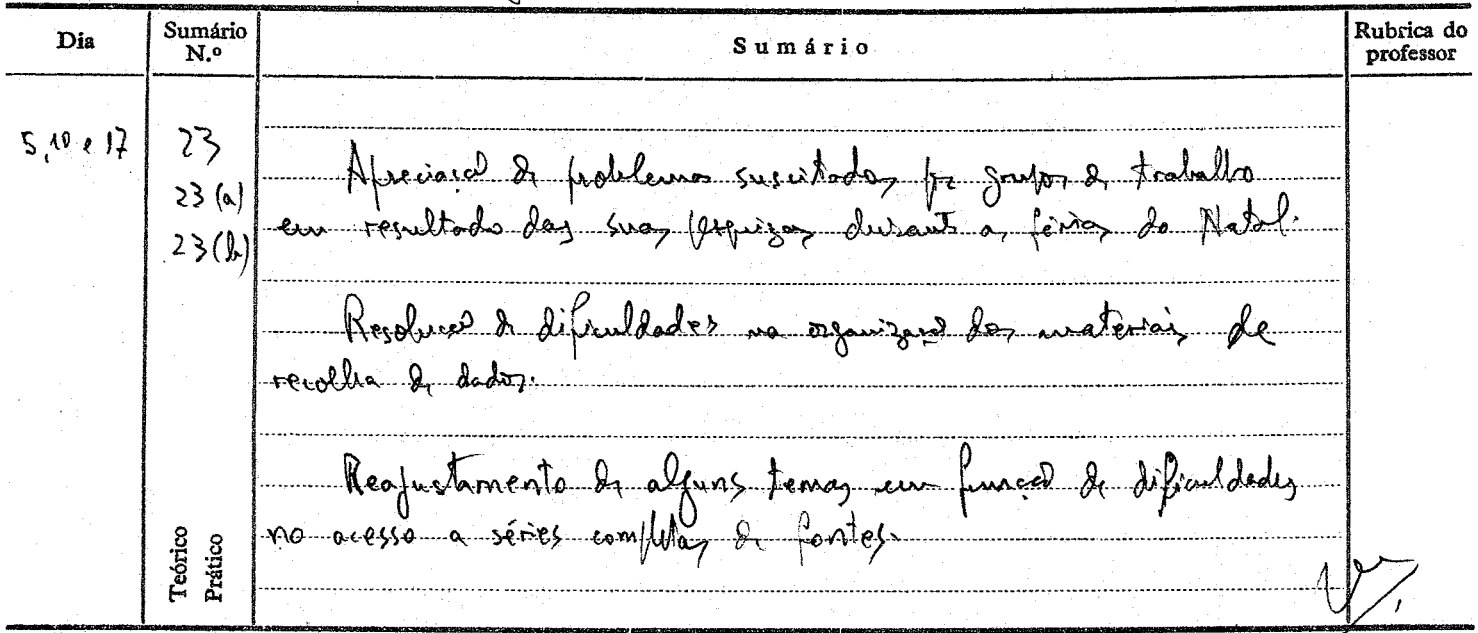 Dia
Sumário N.º
Sumário
Rubrica do professor
5, 10 e 17
23
23 (a)
23 (b)
Apreciação de problemas suscitados por grupos de trabalho
em resultado das suas pesquisas durante as férias do Natal.
Resolução de dificuldades na organização dos materiais de
recolha de dados.
Reajustamento de alguns temas em função de dificuldades
no acesso a séries completas de fontes.
Teórico
Prático